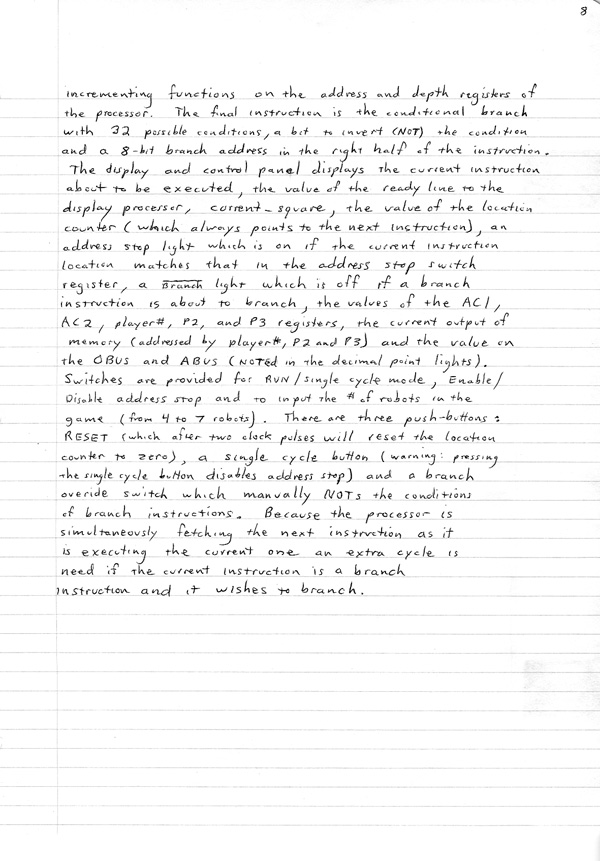 8
incrementing functions on the address and depth registers of
the processor. The final instruction is the conditional branch
with 32 possible conditions, a bit to invert (NOT) the condition
and a 8-bit branch address in the right half of the instruction.
The display and control panel displays the current instruction
about to be executed, the value of the ready line to the
display processor, current-square, the value of the location
counter (which always points to the next instruction), an
address stop light which is on if the current instruction
location matches that in the address stop switch
register, a Branch light which is off if a branch
instruction is about to branch, the values of the AC1,
AC2, player#, P2, and P3 registers, the current output of
memory (addressed by player#, P2 and P3) and the value on
the OBUS and ABUS (NOTed in the decimal point lights).
Switches are provided for RUN/single cycle mode, Enable/
Disable address stop and to input the # of robots in the
game (from 4 to 7 robots). There are three push-buttons:
RESET (which after two clock pulses will reset the location
counter to zero), a single cycle button (warning: pressing
the single cycle button disables address stop) and a branch
overide switch which manually NOTs the conditions
of branch instructions. Because the processor is
simultaneously fetching the next instruction as it
is executing the current one an extra cycle is
need if the current instruction is a branch
instruction and it wishes to branch.